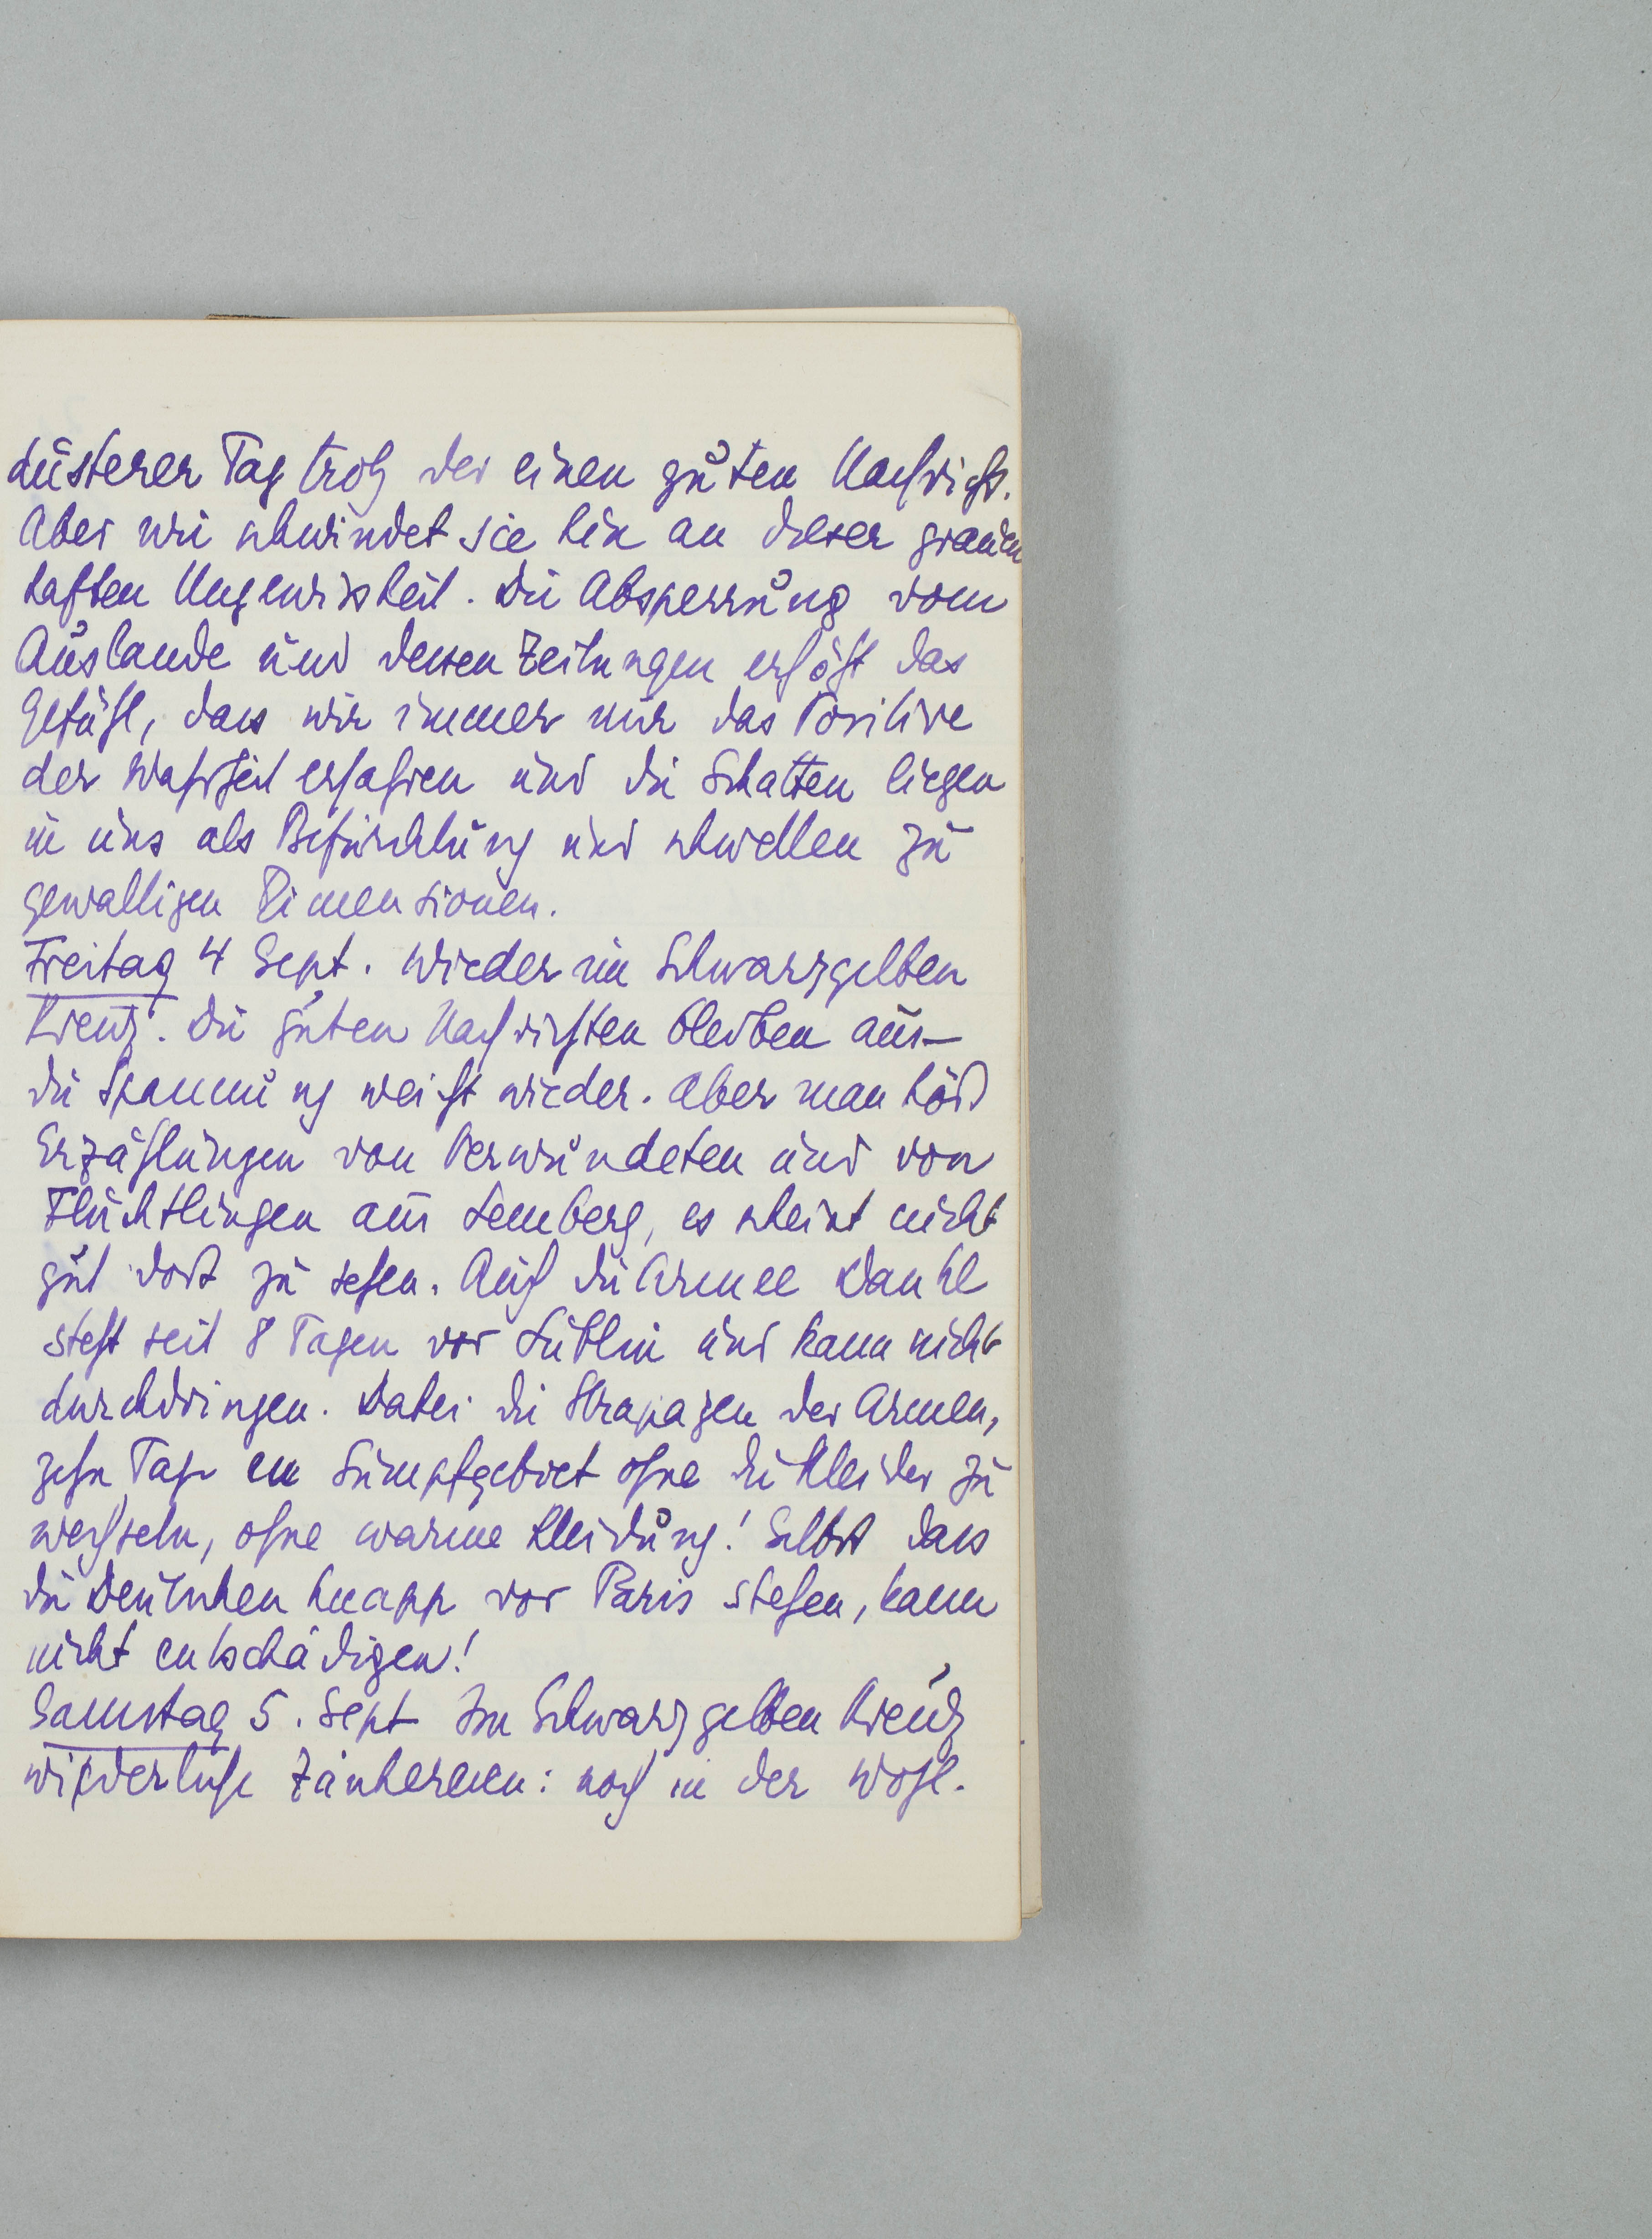 düsterer Tag trotz der einen guten Nachricht.
Aber wie schwindet sie hin an dieser grauen
haften Ungewissheit. Die Absperrung vom
Auslande und dessen Zeitungen erhöht das
Gefühl, dass wir immer nur das Positive
der Wahrheit erfahren und die Schatten liegen
in uns als Befürchtung und schwellen zu
gewaltigen Dimensionen.
Freitag 4 Sept. Wieder im Schwarzgelben
Kreuz. Die guten Nachrichten bleiben aus –
die Spannung weicht wieder. Aber man hört
Erzählungen von Verwundeten und von
Flüchtlingen aus Lemberg, es scheint nicht
gut dort zu stehen. Auch die Armee Dankl
steht seit 8 Tagen vor Lublin und kann nicht
durchdringen. Dabei die Strapazen der Armen,
zehn Tage im Sumpfgebiet ohne die Kleider zu
wechseln, ohne warme Kleidung! Selbst dass
die Deutschen knapp vor Paris stehen, kann
nicht entschädigen!
Samstag 5. Sept Im Schwarzgelben Kreuz
widerliche Zänkereien: noch in der Wohl-